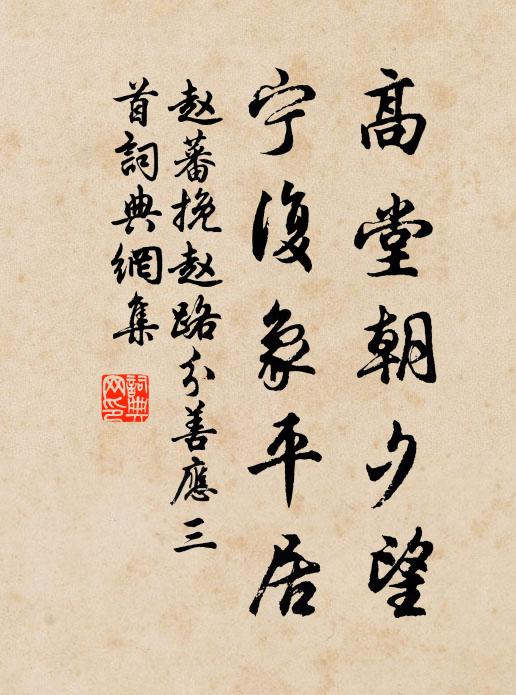 高堂朝夕望
宁復象平居
赵蕃挽赵路分善應三
首詞典網集
詞典
网印